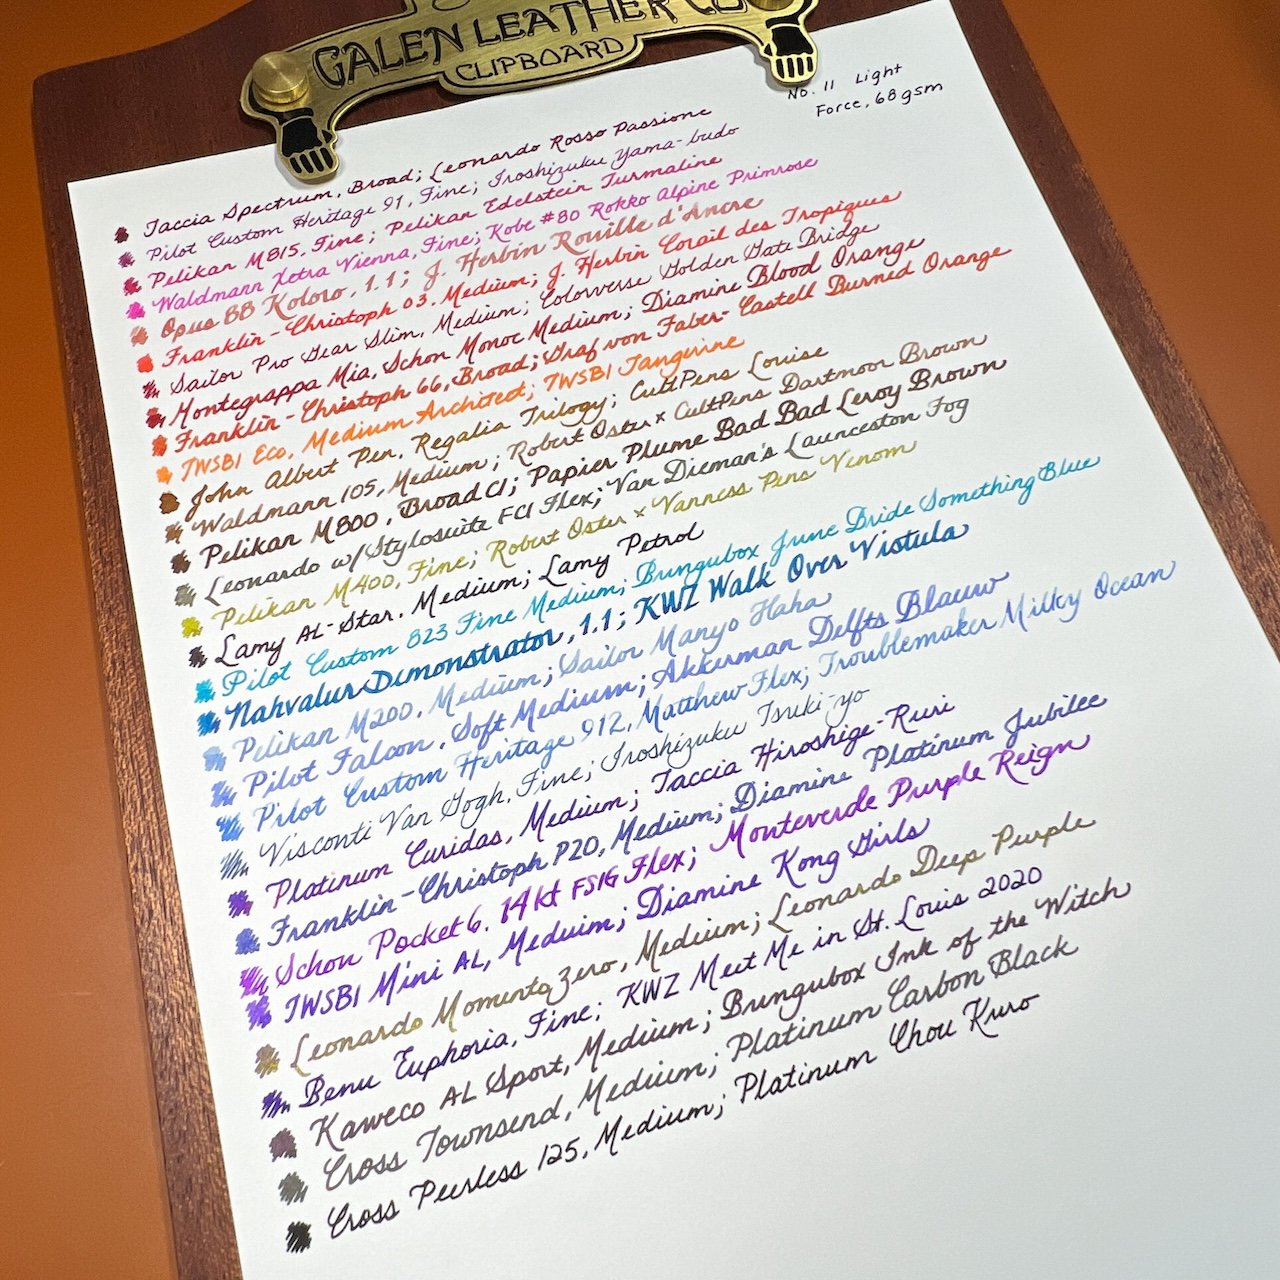 GALEN LEATHER CO
CLIPBOARD
No. 11 Light
Force, 68gsm
Taccia Spectrum, Broad; Leonardo Rosso Passione
Pilot Custom Heritage 91, Fine; Iroshizuku Yama-budo
Pelikan M815, Fine; Pelikan Edelstein Turmaline
Waldmann Xetra Vienna, Fine; Kobe #80 Rokko Alpine Primrose
Opus 88 Koloro, 1.1; J. Herbin Rouille d'Ancre
Franklin-Christoph 03, Medium; J. Herbin Corail des Tropiques
Sailor Pro Gear Slim, Medium; Colorverse Golden Gate Bridge
Montegrappa Mia, Schon Monoc Medium; Diamine Blood Orange
Franklin-Christoph 66, Broad; Graf von Faber-Castell Burned Orange
TWSBI Eco, Medium Architect; TWSBI Tangerine
John Albert Pen, Regalia Trilogy; CultPens Louise
Waldmann 105, Medium; Robert Oster x CultPens Dartmoor Brown
Pelikan M800, Broad CI; Papier Plume Bad Bad Leroy Brown
Leonardo w/Stylosuite FCI Flex; Van Dieman's Launceston Fog
Pelikan M400, Fine; Robert Oster x Vanness Pens Venom
Lamy AL-Star, Medium; Lamy Petrol
Pilot Custom 823 Fine Medium; Bungubox June Bride Something Blue
Nahvalur Demonstrator, 1.1; KWZ Walk Over Vistula
Pelikan M200, Medium; Sailor Manyo Haha
Pilot Falcon, Soft Medium; Akkerman Delfts Blauw
Pilot Custom Heritage 912, Matthew Flex; Troublemaker Milky Ocean
Visconti Van Gogh, Fine; Iroshizuku Tsuki-yo
Platinum Curidas, Medium; Taccia Hiroshige-Ruri
Franklin-Christoph P20, Medium; Diamine Platinum Jubilee
Schon Pocket 6, 14kt FSIG Flex; Monteverde Purple Reign
TWSBI Mini AL, Meduim; Diamine Kong Girls
Leonardo Momento Zero, Medium; Leonardo Deep Purple
Benu Euphoria, Fine; KWZ Meet Me in St. Louis 2020
Kaweco AL Sport, Medium; Bungubox Ink of the Witch
Cross Townsend, Medium; Platinum Carbon Black
Cross Peerless 125, Medium; Platinum Chou Kuro